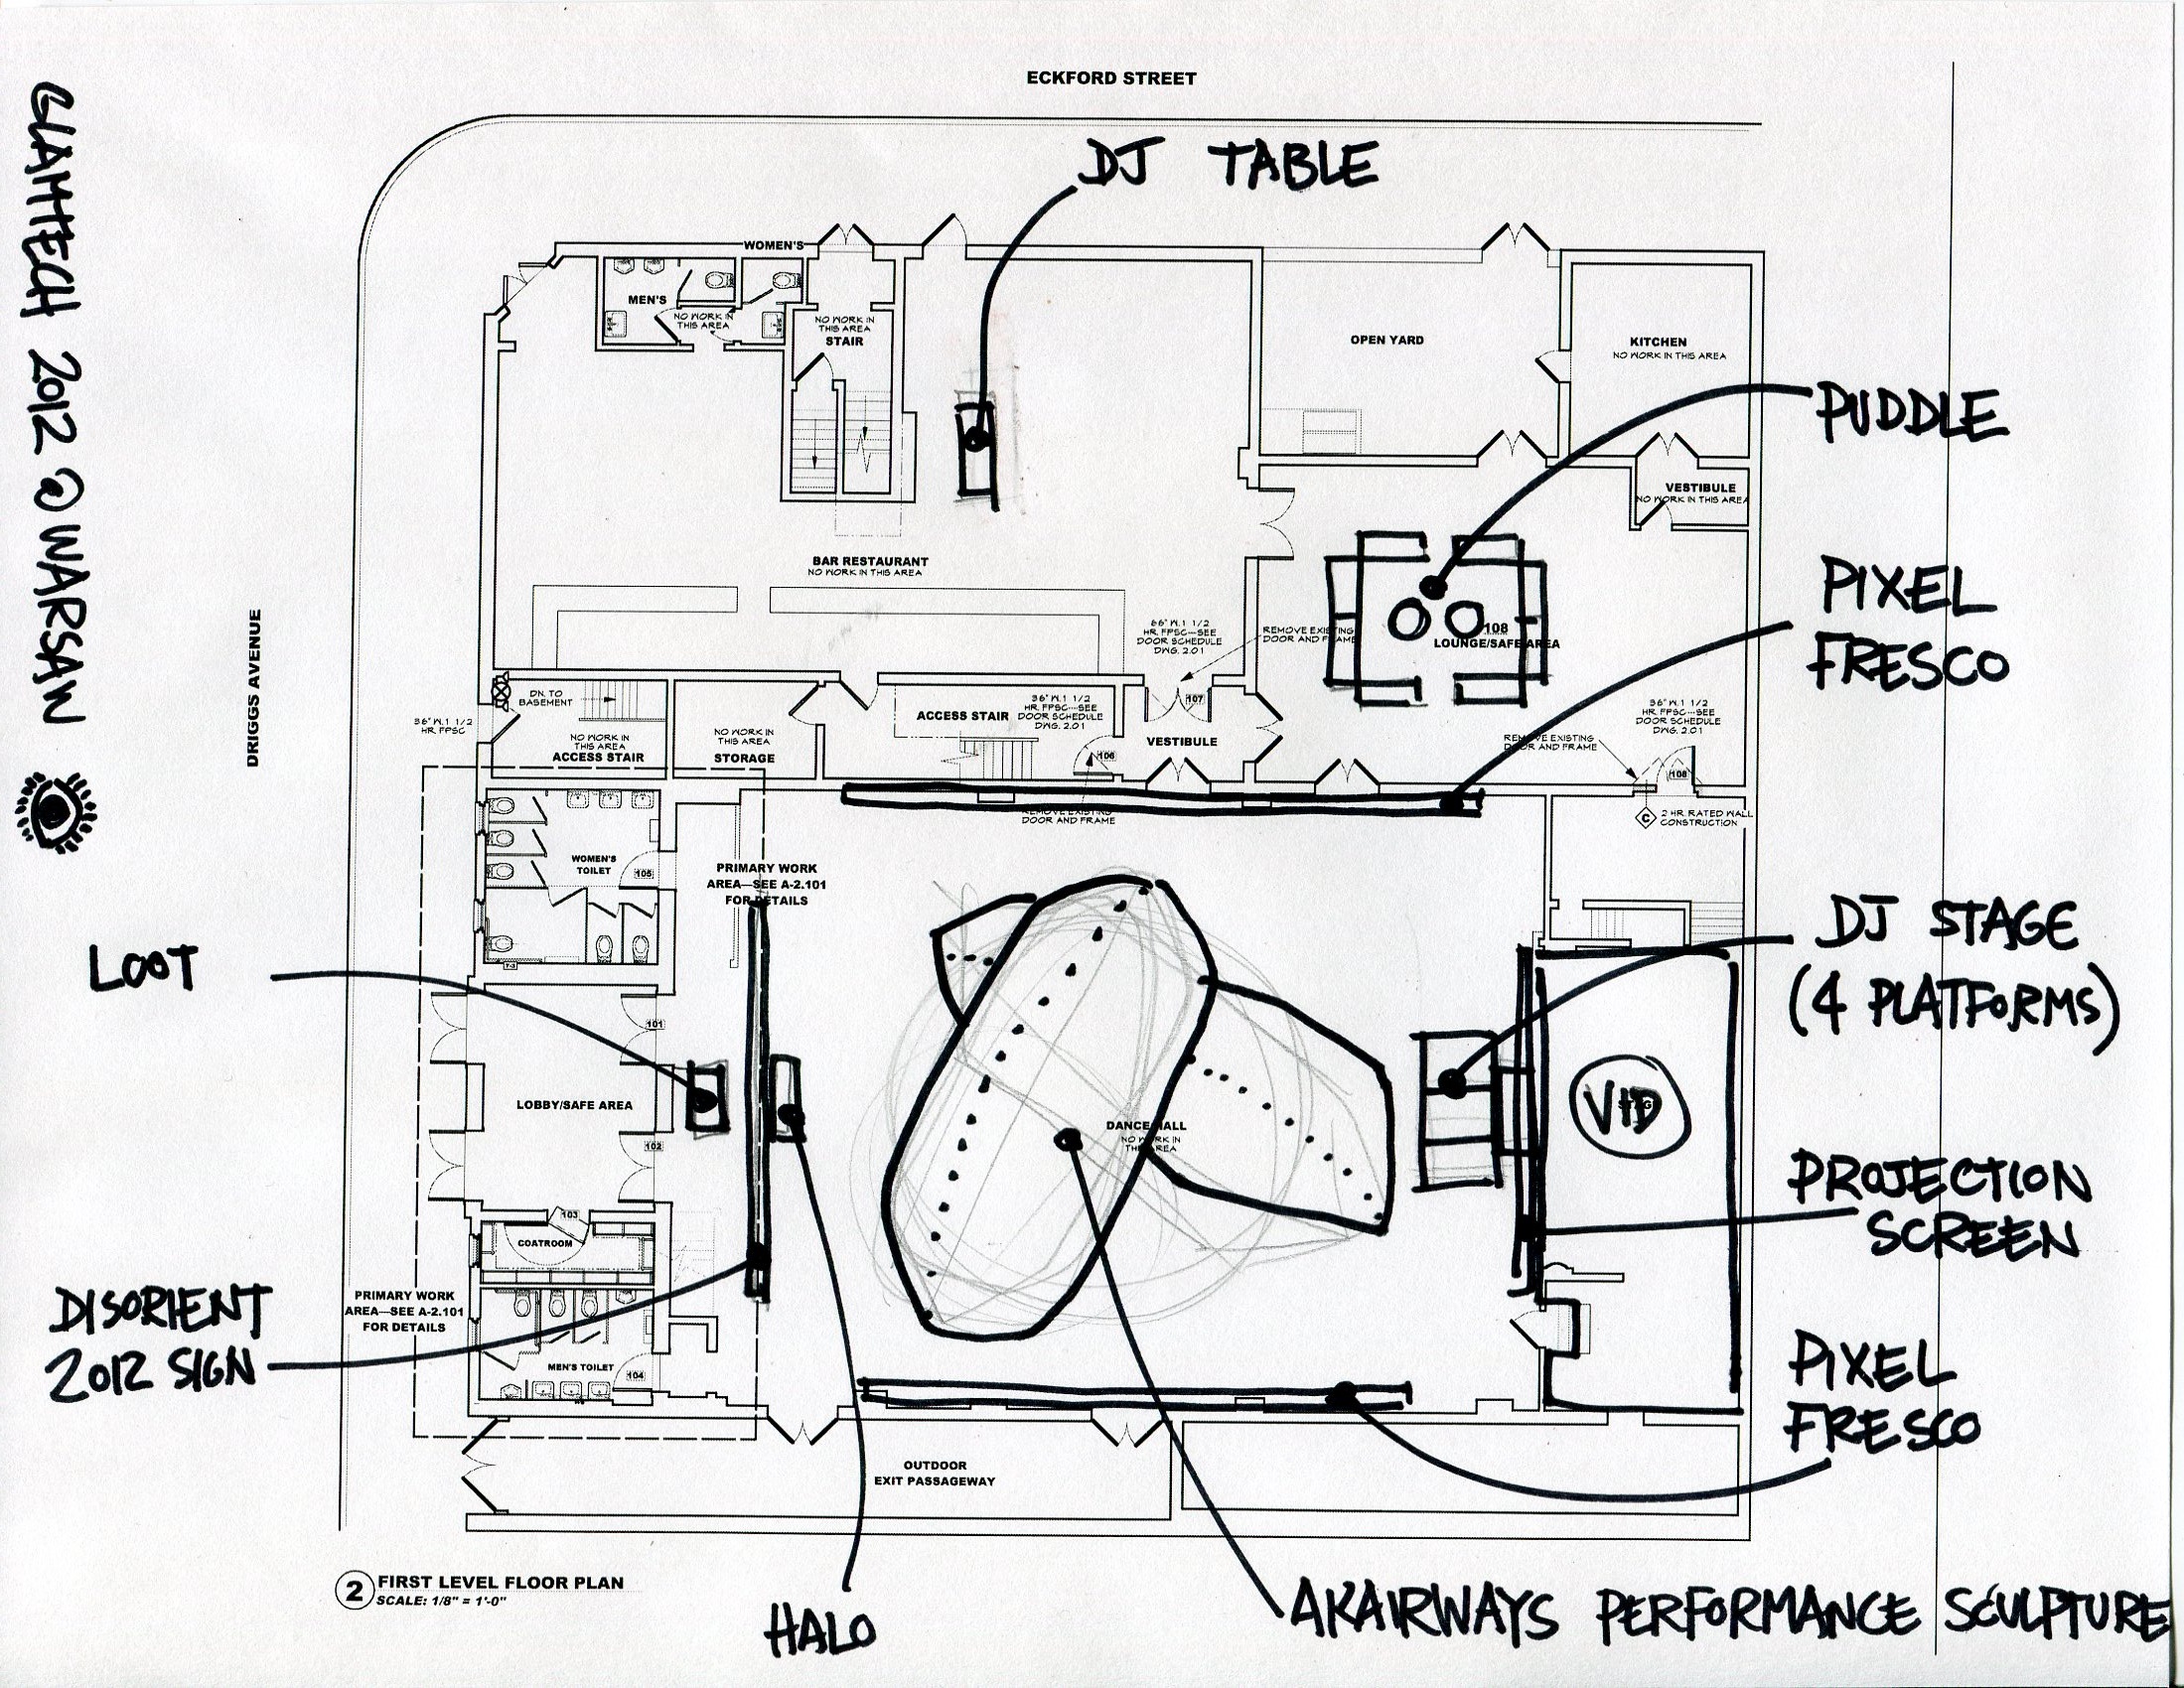 ECKFORD STREET
GLAMTECH 2012 @ WARSAW
DRIGGS AVENUE
DJ TABLE
WOMEN'S
MEN'S
NO WORK IN
THIS AREA
NO WORK IN
THIS AREA
STAIR
OPEN YARD
KITCHEN
NO WORK IN THIS AREA
PUDDLE
VESTIBULE
NO WORK IN THIS AREA
BAR RESTAURANT
NO WORK IN THIS AREA
PIXEL
FRESCO
66" W.1 1/2
HR. FPSC--SEE
DOOR SCHEDULE
DWG. 2.01
REMOVE EXISTING
DOOR AND FRAME
108
LOUNGE/SAFE AREA
DN. TO
BASEMENT
36" W.1 1/2
HR. FPSC
NO WORK IN
THIS AREA
ACCESS STAIR
NO WORK IN
THIS AREA
STORAGE
ACCESS STAIR
36" W.1 1/2
HR. FPSC--SEE
DOOR SCHEDULE
DWG. 2.01
107
VESTIBULE
106
36" W.1 1/2
HR. FPSC--SEE
DOOR SCHEDULE
DWG. 2.01
REMOVE EXISTING
DOOR AND FRAME
108
REMOVE EXISTING
DOOR AND FRAME
C
2 HR. RATED WALL
CONSTRUCTION
WOMEN'S
TOILET
105
PRIMARY WORK
AREA—SEE A-2.101
FOR DETAILS
LOOT
DJ STAGE
(4 PLATFORMS)
101
LOBBY/SAFE AREA
102
DANCE HALL
NO WORK IN
THIS AREA
VID
PROJECTION
SCREEN
103
COATROOM
DISORIENT
2012 SIGN
PRIMARY WORK
AREA—SEE A-2.101
FOR DETAILS
MEN'S TOILET
104
PIXEL
FRESCO
OUTDOOR
EXIT PASSAGEWAY
2
FIRST LEVEL FLOOR PLAN
SCALE: 1/8" = 1'-0"
HALO
AKAIRWAYS PERFORMANCE SCULPTURE